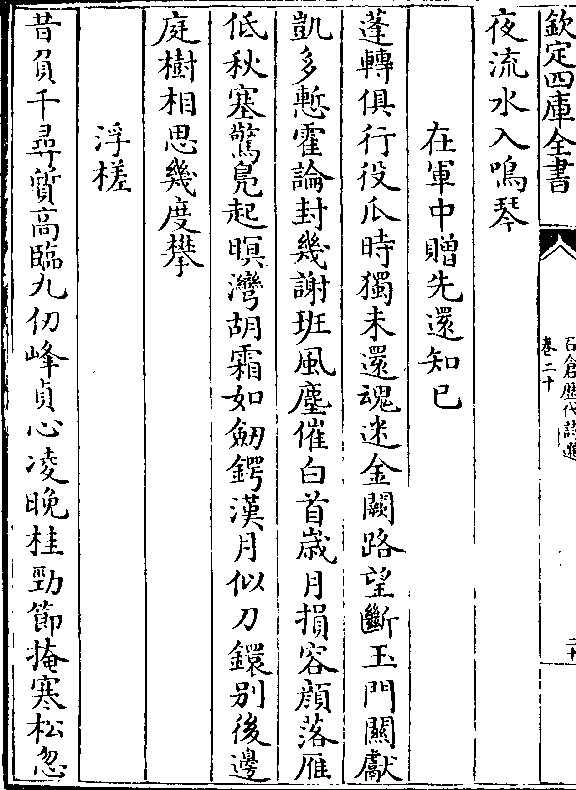 欽定四庫全書
石倉歷代詩選
卷二十
夜流水入鳴琴
在軍中贈先還知已
蓬轉俱行役瓜時獨未還魂迷金闕路望斷玉門關獻
凱多慙霍論封幾謝班風塵催白首歲月損容顔落雁
低秋塞驚鳬起暝灣胡霜如劒鍔漢月似刀鐶别後邊
庭樹相思幾度攀
浮槎
昔負千尋質高臨九仞峰貞心凌晚桂勁節掩寒松忽